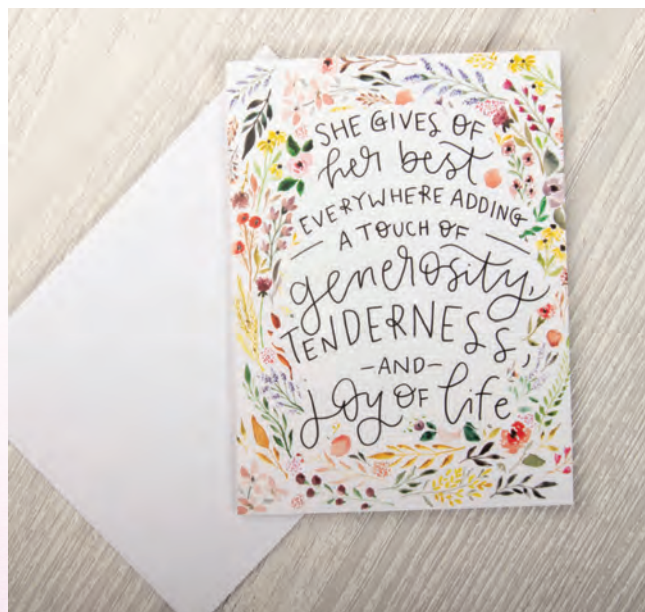 SHE GIVES OF
her best
EVERYWHERE ADDING
A TOUCH OF
generosity,
TENDERNESS,
-AND-
joy OF life